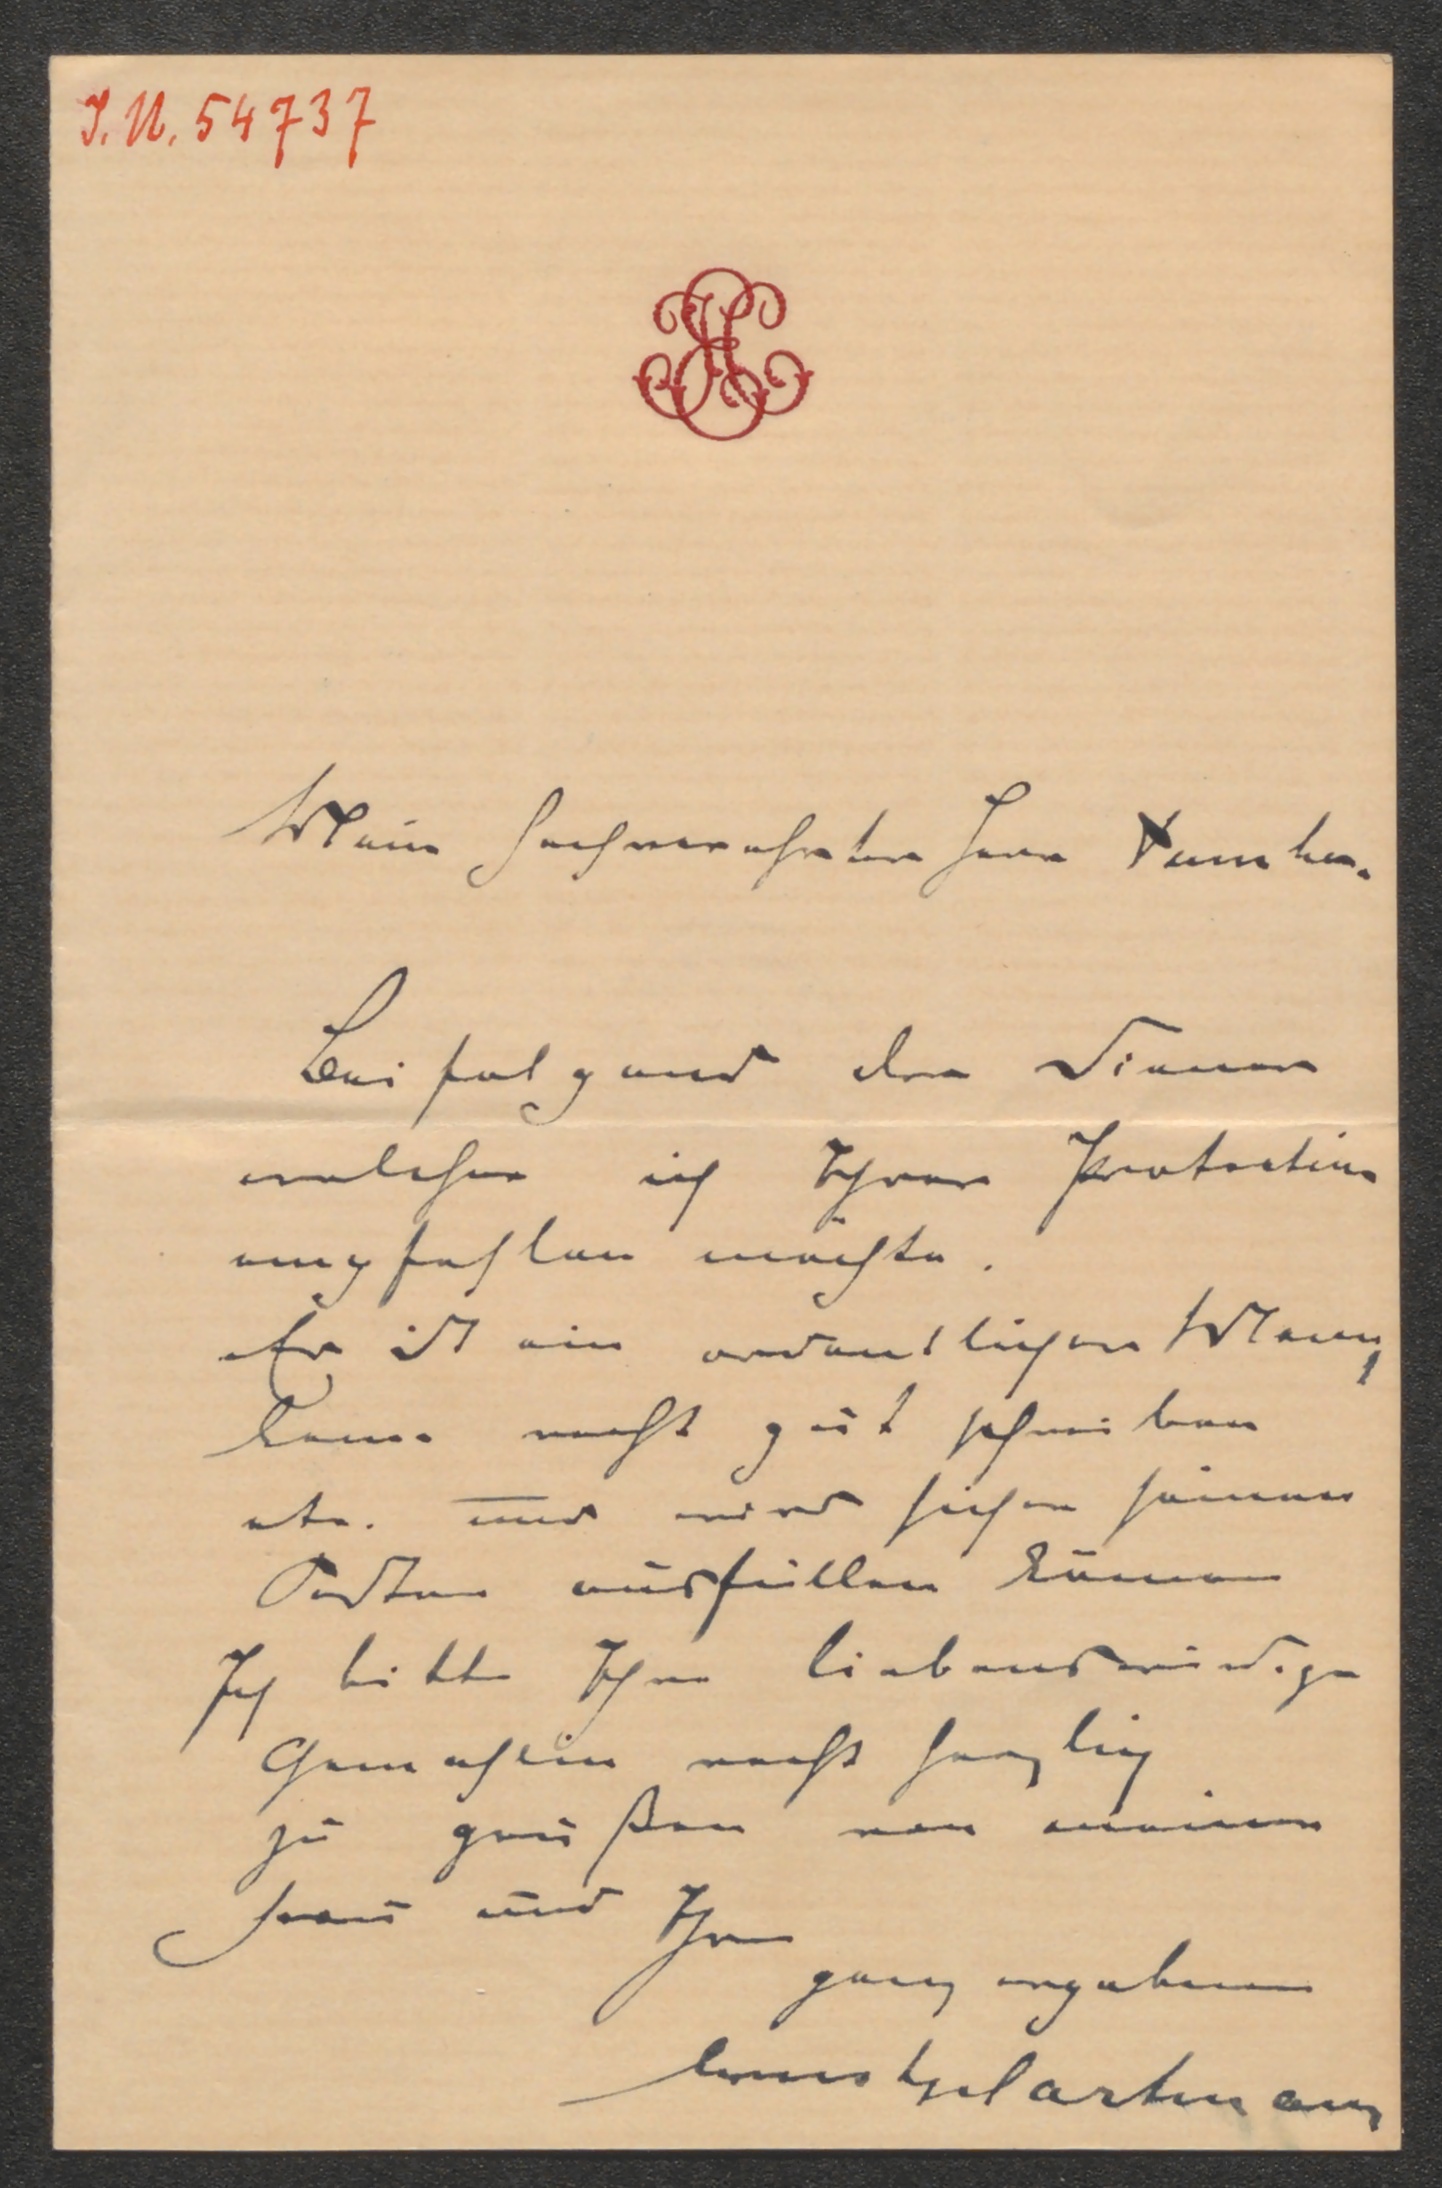 I. N. 54737
EH
Mein hochverehrter Herr
Beifolgend der Diener
welchen ich Ihrer Protection
empfehlen möchte.
Er ist ein ordentlicher Mann,
kann recht gut schreiben
etc. und wird sicher seinen
Posten ausfüllen können
Ich bitte Ihre liebenswürdige
Gemahlin recht herzlich
zu grüßen von meiner
Frau und Ihrem
ganz ergebenen
Ernst Hartmann